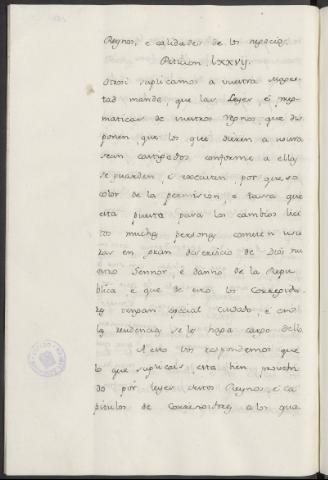 Reynos, e calidades de los negocios.
Peticion LXXVIJ.
Otrosi suplicamos a vuestra Mages-
tad mande, que las Leyes, e Preg-
maticas de vuestros Reynos, que dis
ponen, que los que dieren a usura
sean castigados conforme a ellas
se guarden e executen, por que so
color de la permision, e tassa que
esta puesta para los cambios lici
tos muchas personas cometen usu
ras en gran deservicio de Dios nu
estro Sennor, e danno de la Repu
blica e que de esto los Corregido
res tengan especial cuidado, e en
las residencias se les haga cargo dello
A esto vos respondemos que
lo que suplicais, esta bien provehi
do por leyes destos Reynos, e ca
pitulos de Corregidores, a los qua